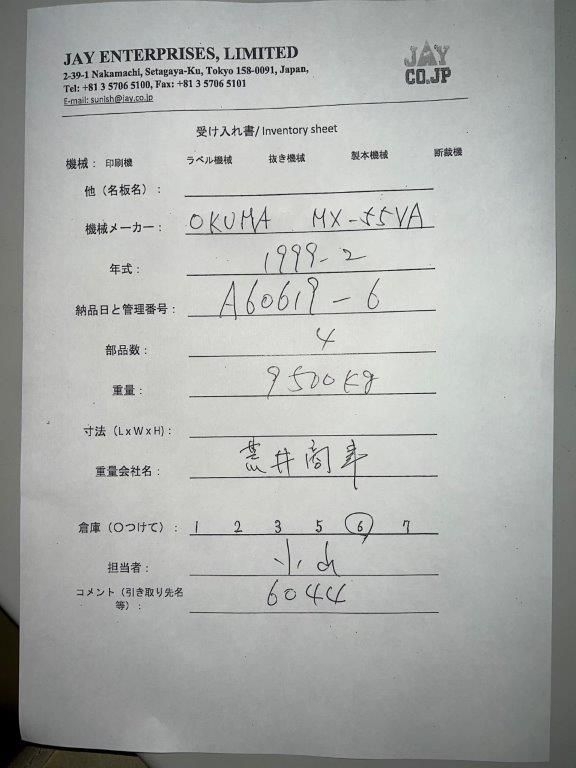 JAY ENTERPRISES, LIMITED
2-39-1 Nakamachi, Setagaya-Ku, Tokyo 158-0091, Japan,
Tel: +81 3 5706 5100, Fax: +81 3 5706 5101
E-mail: sunish@jay.co.jp
JAY
CO.JP
受け入れ書/ Inventory sheet
機械： 印刷機 ラベル機械 抜き機械 製本機械 断裁機
他（名板名）：
機械メーカー： OKUMA MX-55VA
年式： 1999-2
納品日と管理番号： A60619-6
部品数： 4
重量： 9500kg
寸法（LxWxH)：
重量会社名： 荒井商事
倉庫（〇つけて）： 1 2 3 5 6 7
担当者： 小
コメント（引き取り先名 6044
等）：